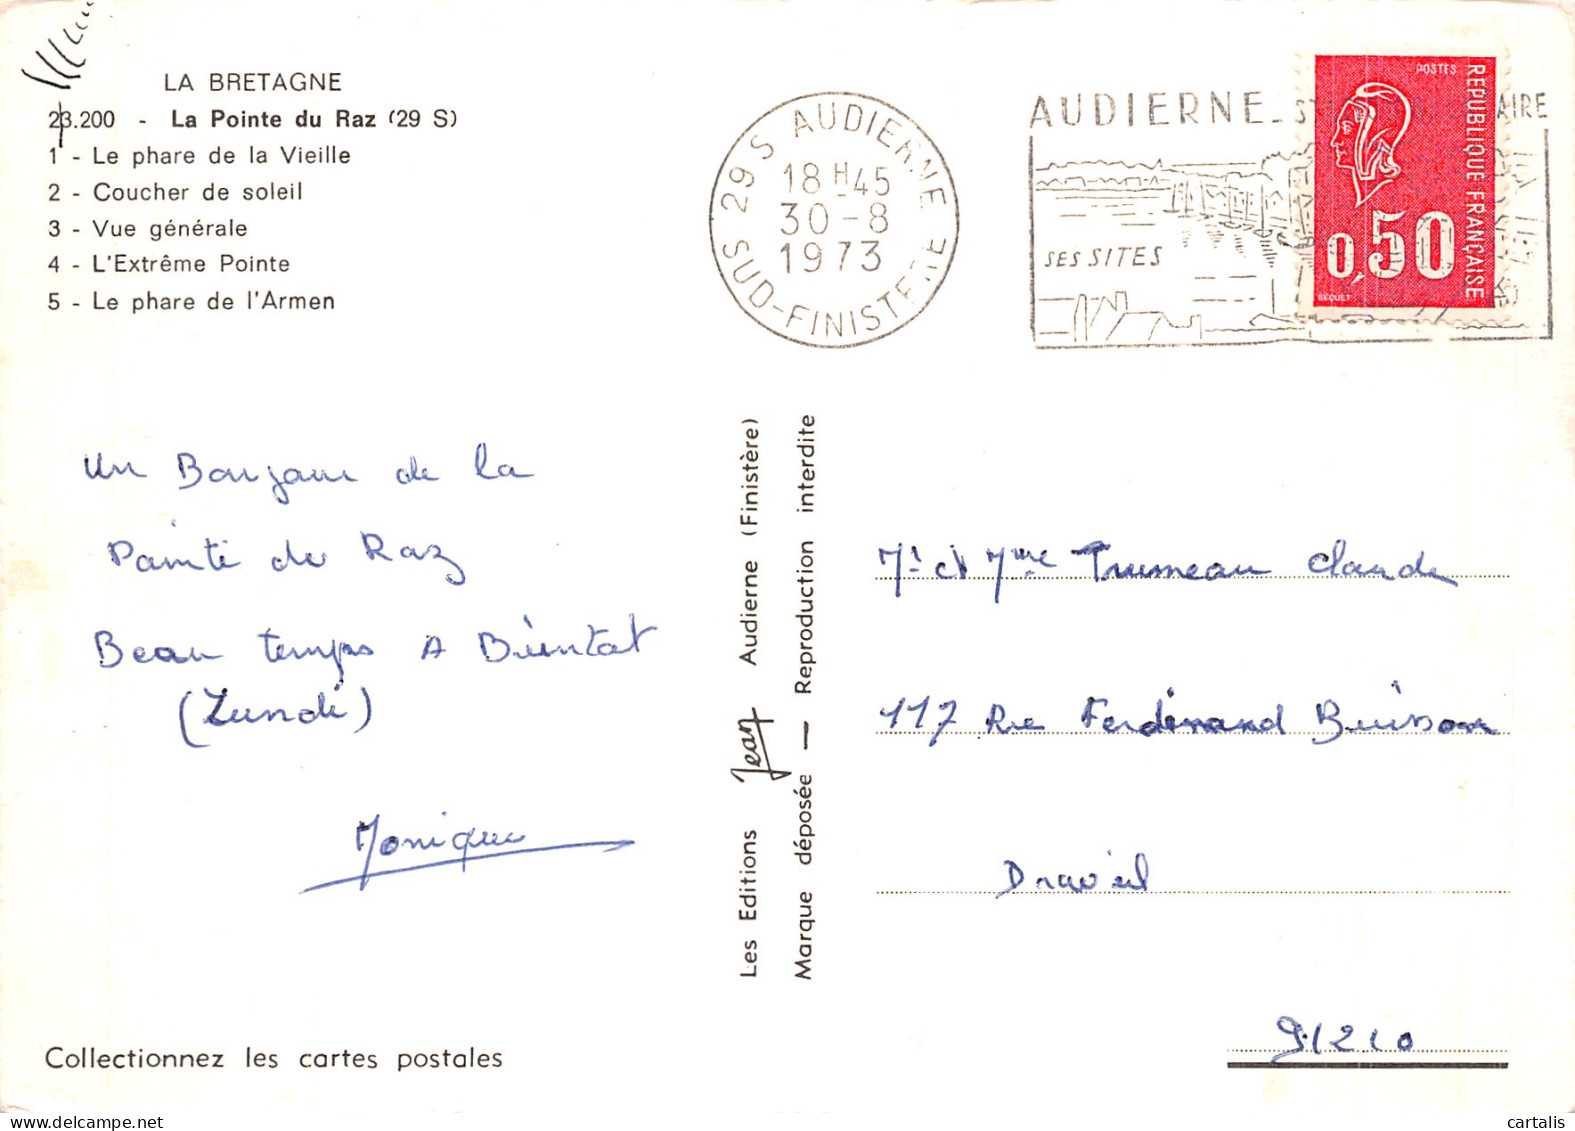 LA BRETAGNE
23.200 - La Pointe du Raz (29 S)
1 - Le phare de la Vieille
2 - Coucher de soleil
3 - Vue générale
4 - L'Extrême Pointe
5 - Le phare de l'Armen
29 S AUDIERNE
18 H 45
30 - 8
1973
SUD-FINISTERE
AUDIERNE
SES SITES
POSTES
REPUBLIQUE FRANÇAISE
0,50
BEQUET
Un Bonjour de la
Pointe du Raz
Beau temps A Bientot
(Lundi)
Monique
Les Editions Jean Audierne (Finistère)
Marque déposée — Reproduction interdite
Mr et Mme Trumeau Claude
117 Rue Ferdinand Buisson
Draveil
91210
Collectionnez les cartes postales
delcampe.net
cartalis